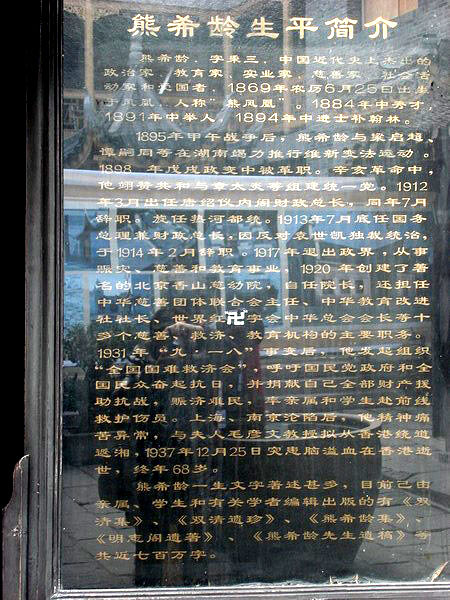 熊希龄生平简介
熊希龄,字秉三,中国近代史上杰出的
政治家、教育家、实业家、慈善家、社会活
动家和爱国者。1869年农历6月25日出生
于凤凰,人称“熊凤凰”。1884年中秀才,
1891年中举人,1894年中进士补翰林。
1895年甲午战争后,熊希龄与梁启超、
谭嗣同等在湖南竭力推行维新变法运动。
1898年戊戌政变中被革职。辛亥革命中,
他翊赞共和与章太炎等组建统一党。1912
年3月出任唐绍仪内阁财政总长,同年7月
辞职。旋任热河都统。1913年7月底任国务
总理兼财政总长,因反对袁世凯独裁统治,
于1914年2月辞职。1917年退出政界,从事
赈灾、慈善和教育事业,1920年创建了著
名的北京香山慈幼院,自任院长,还担任
中华慈善团体联合会主任、中华教育改进
社社长、世界红卍字会中华总会会长等十
多个慈善、救济、教育机构的主要职务。
1931年“九·一八”事变后,他发起组织
“全国国难救济会”,呼吁国民党政府和全
国民众奋起抗日,并捐献自己全部财产援
助抗战,赈济难民,率亲属和学生赴前线
救护伤员。上海、南京沦陷后,他精神痛
苦异常,与夫人毛彦文教授拟从香港绕道
返湘,1937年12月25日突患脑溢血在香港逝
世,终年68岁。
熊希龄一生文字著述甚多,目前已由
亲属、学生和有关学者编辑出版的有《双
清集》、《双清遗珍》、《熊希龄集》、
《明志阁遗著》、《熊希龄先生遗稿》等
共近七百万字。